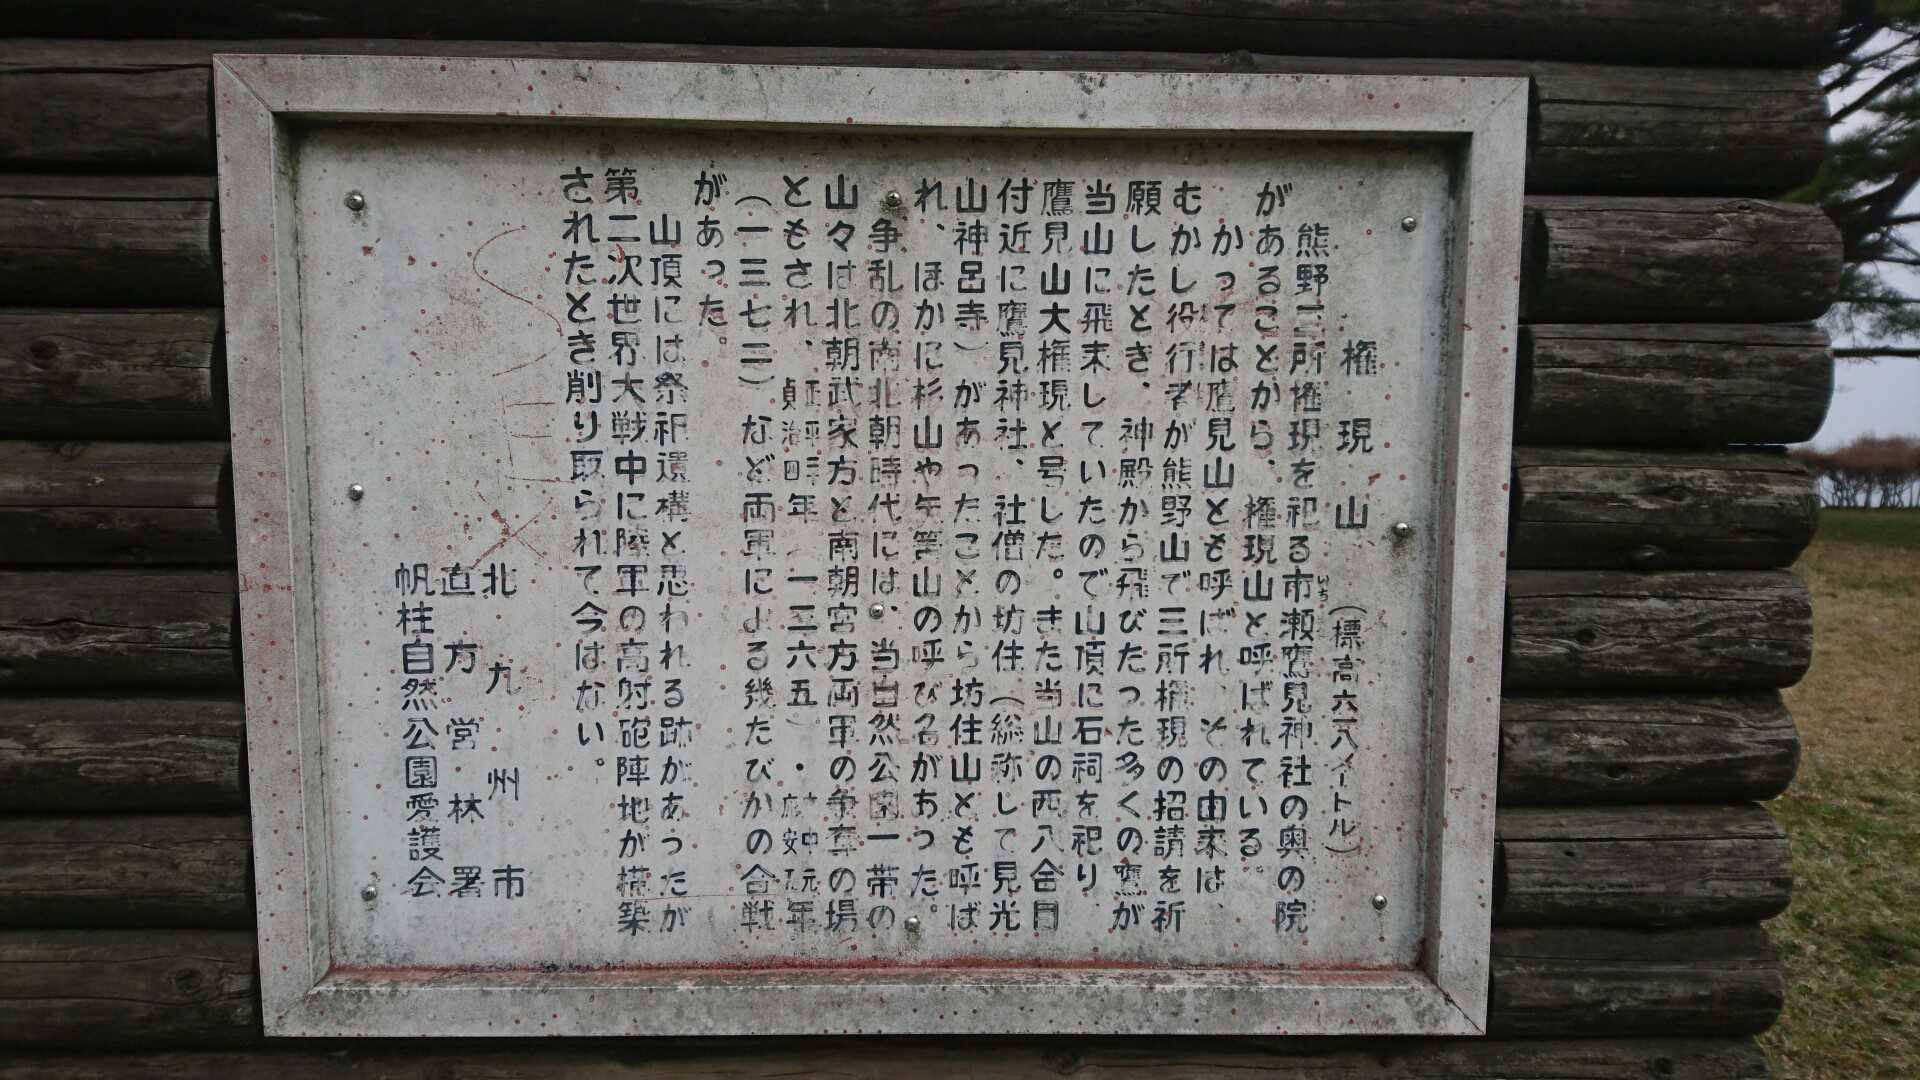 権現山 (標高六一八メートル)
熊野三所権現を祀る市瀬鷹見神社の奥の院
があることから、権現山と呼ばれている。
かつては鷹見山とも呼ばれ、その由来は、
むかし役行者が熊野山で三所権現の招請を祈
願したとき、神殿から飛びたった多くの鷹が
当山に飛来していたので山頂に石祠を祀り、
鷹見山大権現と号した。また当山の西八合目
付近に鷹見神社、社僧の坊住(総称して見光
山神呂寺)があったことから坊住山とも呼ば
れ、ほかに杉山や矢筈山の呼び名があった。
争乱の南北朝時代には、当自然公園一帯の
山々は北朝武家方と南朝宮方両軍の争奪の場
ともされ、貞治四年(一三六五)・応安年
(一三七二)など両軍による幾たびかの合戦
があった。
山頂には祭祀遺構と思われる跡があったが
第二次世界大戦中に陸軍の高射砲陣地が構築
されたとき削り取られて今はない。
北九州市
直方営林署
帆柱自然公園愛護会